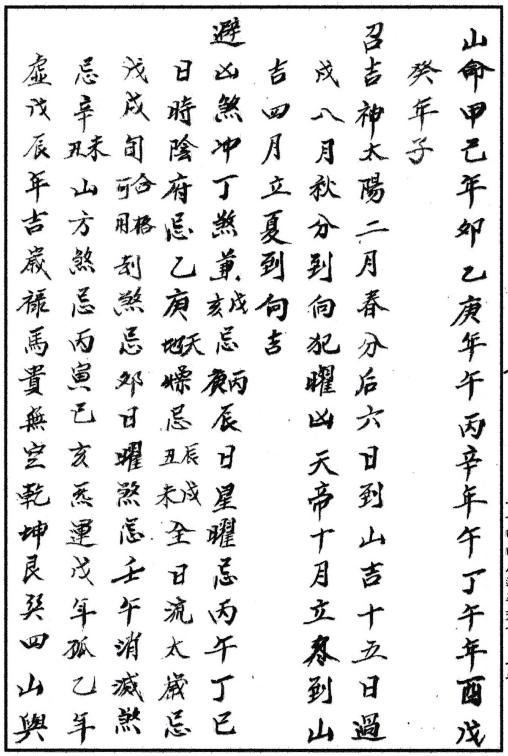 山命甲己年卯乙庚年午丙辛年午丁午年酉戊
癸年子
召吉神太陽二月春分后六日到山吉十五日過
戌八月秋分到向犯曜凶天帝十月立冬到山
吉四月立夏到向吉
避凶煞冲丁煞兼戊亥忌丙庚辰日星曜忌丙午丁巳
日時陰府忌乙庚天地燥忌辰戌丑未全日流太歲忌
戊戌旬合格可用刦煞忌卯日曜煞忌壬午消滅煞
忌辛未丑山方煞忌丙寅己亥炁運戊年孤乙年
虛戊辰年吉歲祿馬貴無空乾坤艮巽四山與